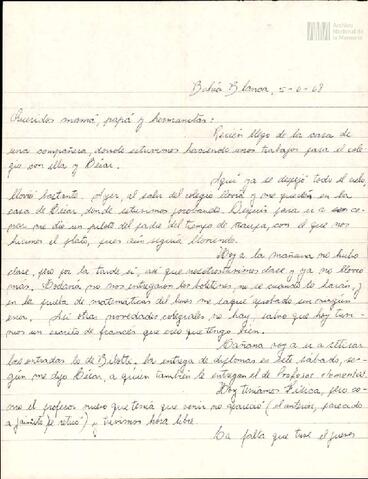 Archivo
Nacional de
la Memoria
Bahía Blanca, 5-6-68
Queridos mamá, papá y hermanitas:
Recién llego de la casa de
una compañera, donde estuvimos haciendo unos trabajos para el cole-
gio, con ella y César.
Aquí ya se despejó todo el cielo,
llovió bastante. Ayer, al salir del colegio llovía y me quedé en la
casa de César, donde estuvimos Después para ir a co-
mer me dio un piloto del padre del tiempo de con el que nos
hacíamos el plato, pues aún seguía lloviendo.
Hoy a la mañana no hubo
clase, pero por la tarde sí, así que tuvimos clase y ya no llovió
más. Todavía no nos entregaron los boletines, no sé cuándo lo harán, y
en la prueba de matemáticas del lunes me saqué aprobado sin ningún
error. Así otras novedades colegiales, no hay, salvo que hoy tuvi-
mos un escrito de francés que creo que tengo bien.
Mañana voy a ir a retirar
las entradas la de Bibotte. La entrega de diplomas es este sábado, se-
gún me dijo César, a quien también le entregan el de Profesor elemental.
Hoy teníamos Física, pero co-
mo el profesor nuevo que tenía que venir no apareció (el anterior,
se retiró") y tuvimos hora libre.
La falta que tuve el jueves